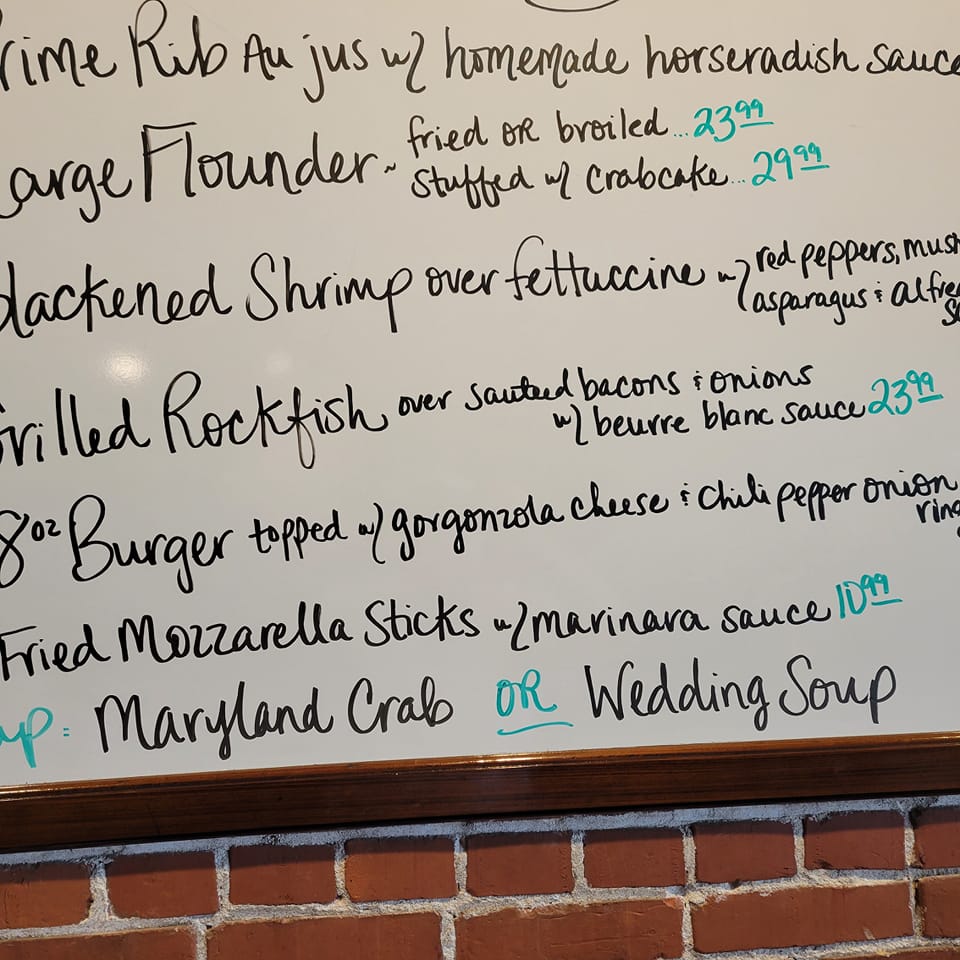 rime Rib Au jus w/ homemade horseradish sauce
arge Flounder ~ fried OR broiled... 23.99
stuffed w/ crabcake... 29.99
lackened Shrimp over fettuccine w/ red peppers, mush
asparagus & alfre
s
rilled Rockfish over sauteed bacons & onions
w/ beurre blanc sauce 23.99
8oz Burger topped w/ gorgonzola cheese & chili pepper onion
ring
Fried Mozzarella Sticks w/ marinara sauce 10.99
up: Maryland Crab OR Wedding Soup